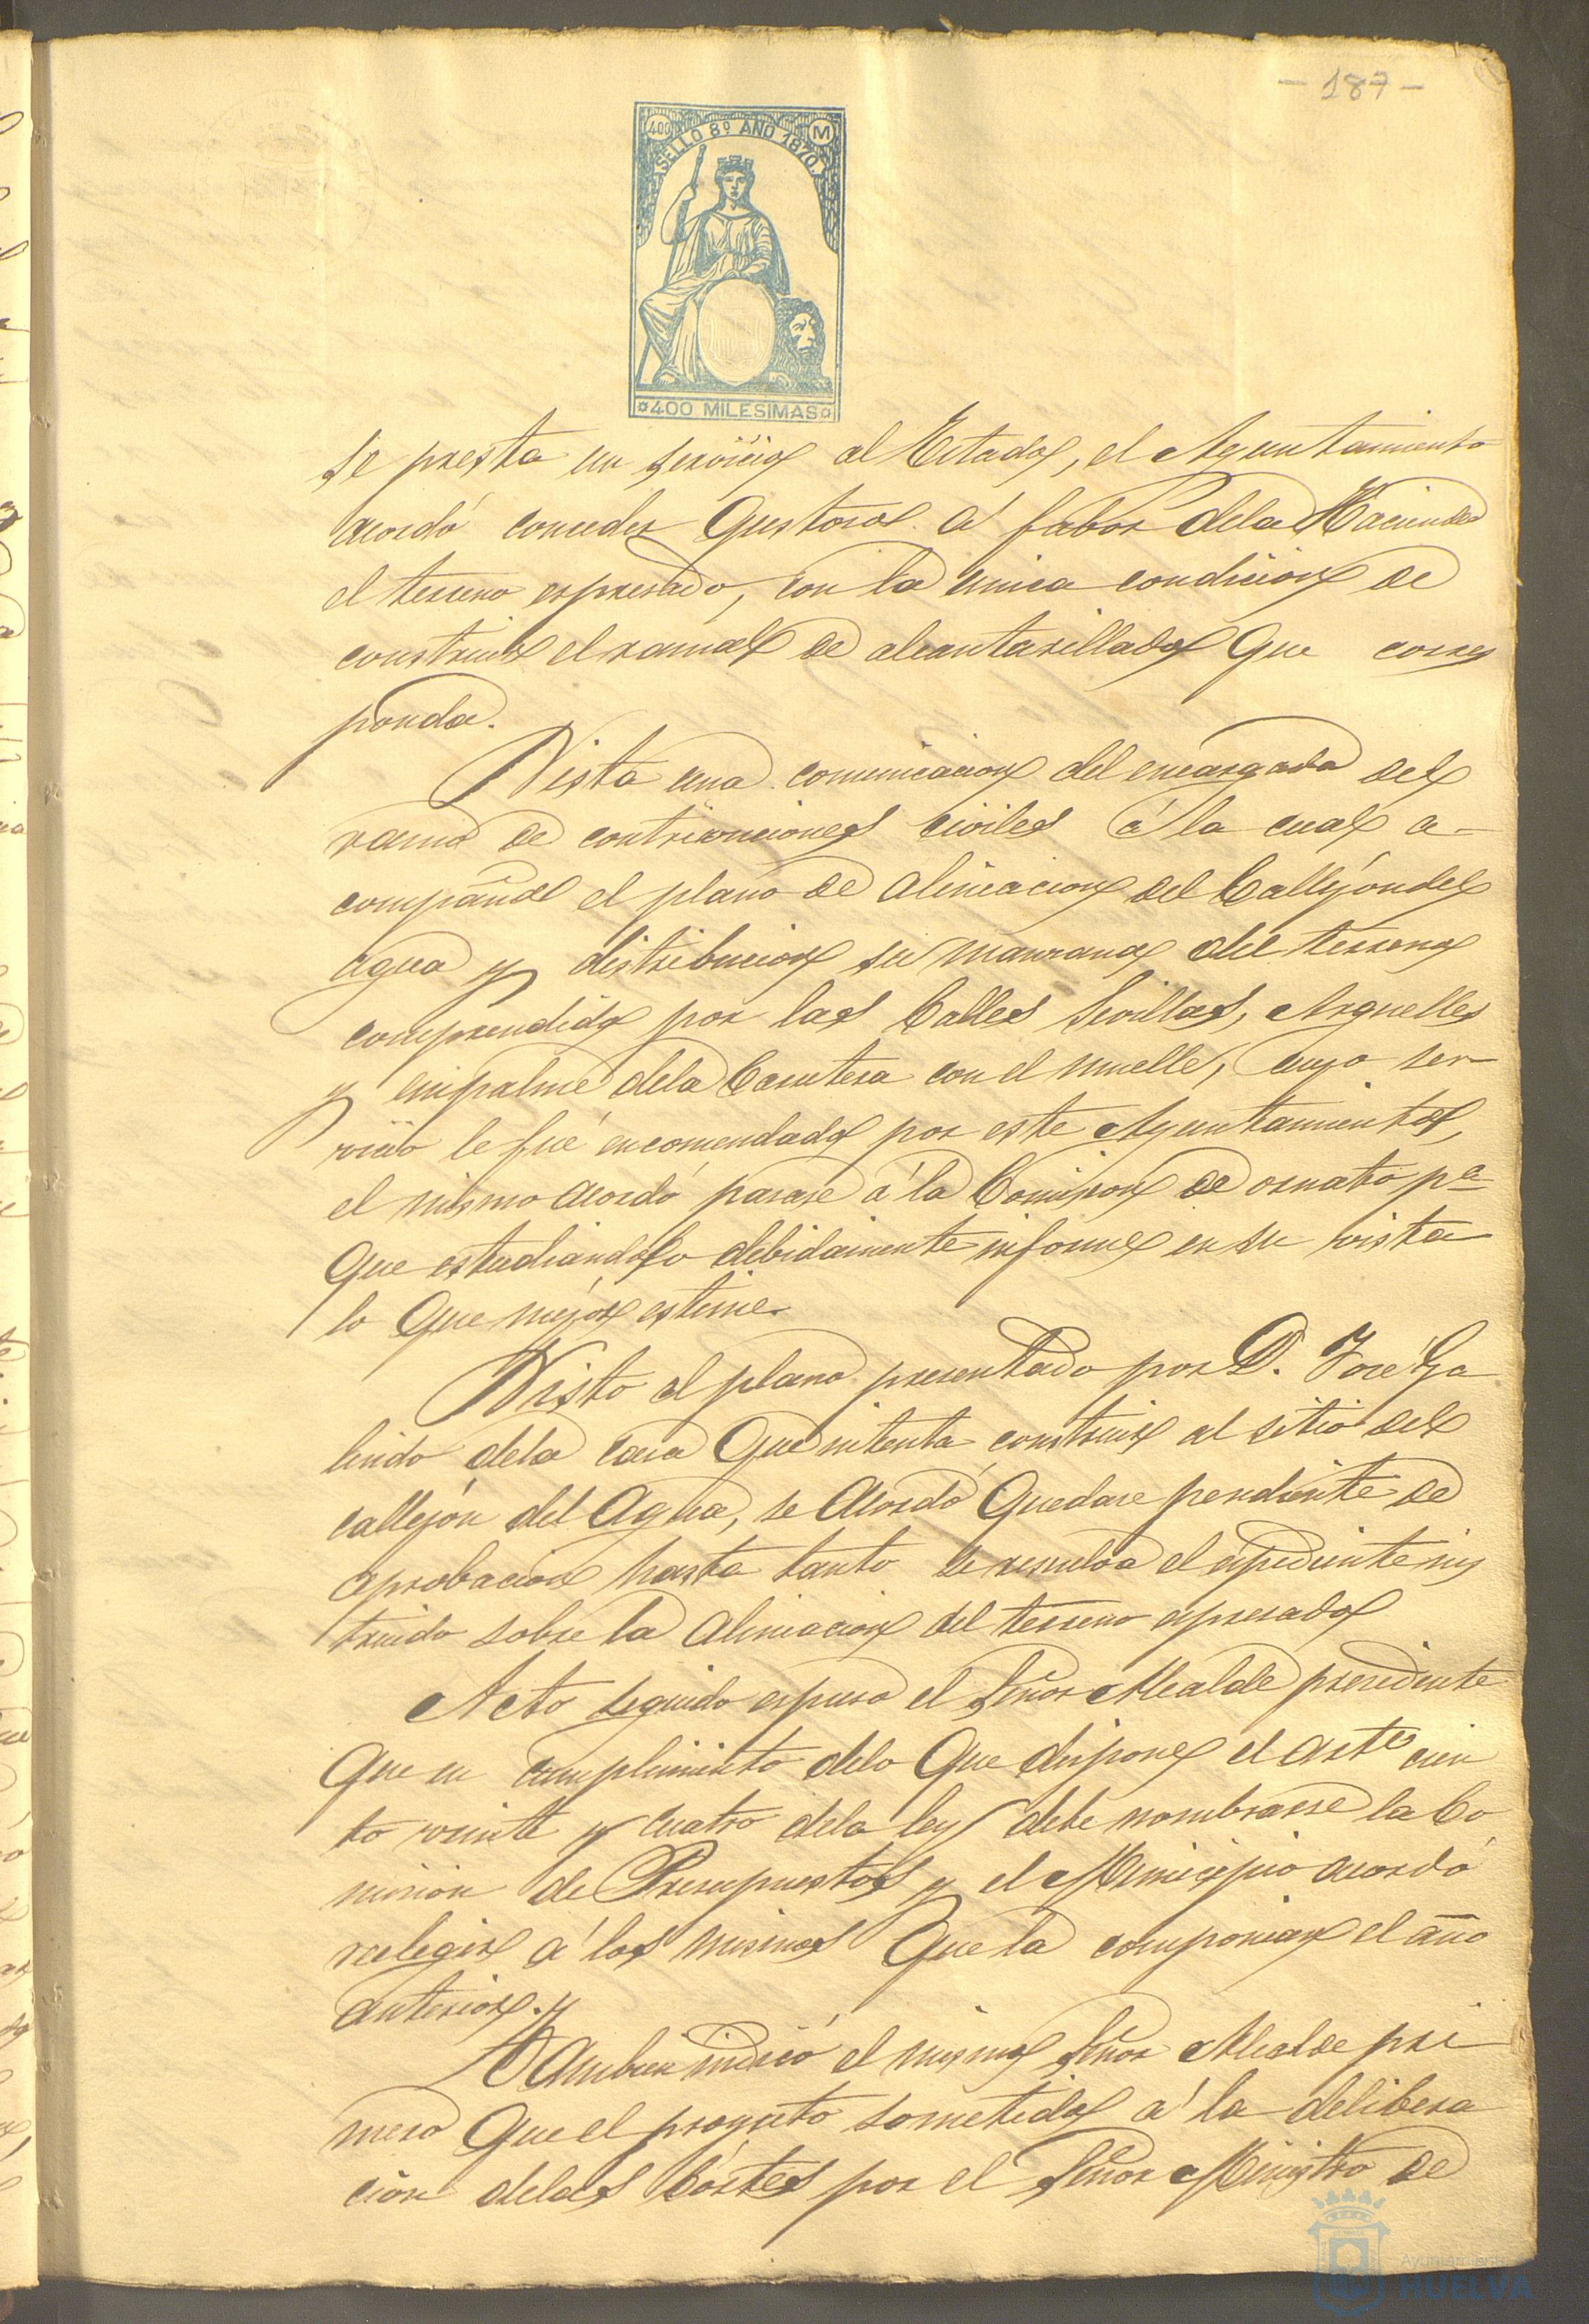 - 187 -
400 SELLO 8º AÑO 1870. M
400 MILESIMAS
se presta un servicio al Estado, el Ayuntamiento
acordó conceder gustoso á fabor dela Hacienda
el terreno espresado, con la unica condicion de
construir el ramal de alcantarillado que corres
ponda.
Vista una comunicacion del encargado del
ramo de contruciones civiles á la cual a-
compaña el plano de alineacion del Callejon del
agua y distribucion su manzana del terreno
comprendido por las Calles Sevilla, Arguelles
y empalme dela Carretera con el muelle, cuyo ser-
vicio le fué encomendado por este Ayuntamiento,
el mismo acordó pasase á la Comision de ornato pª
que estudiandolo debidamente informe en su vista
lo que mejor estime.
Visto el plano presentado por D. José Ga
lindo dela casa que intenta construir al sitio del
callejon del Agua, se acordó quedase pendiente de
aprobacion hasta tanto se resuelva el espediente ins
truido sobre la alineacion del terreno espresado
Acto seguido espuso el Señor Alcalde presidente
que en cumplimiento delo que dispone el artº cien
to veinte y cuatro dela ley debe nombrarse la Co
mision de Presupuestos y el Municipio acordó
relegir á los mismos que la componian el año
anterior.
Tambien indicó el mismo Señor Alcalde pri
mero que el proyecto sometido á la delibera
cion delas Córtes por el Señor Ministro de
Ayuntamiento
HUELVA